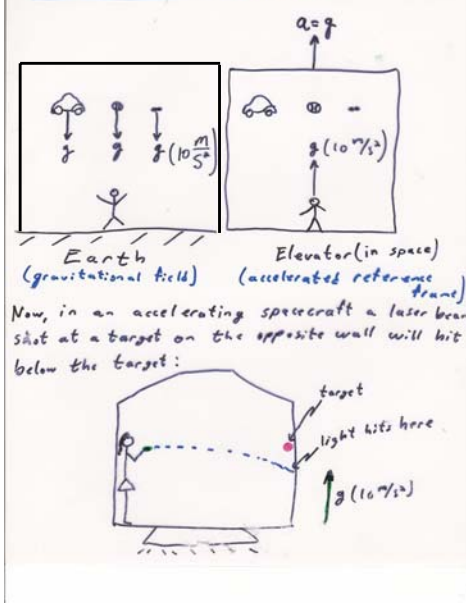 a=g
g g g (10 m/s²)
g (10 m/s²)
Earth
(gravitational field)
Elevator (in space)
(accelerated reference frame)
Now, in an accelerating spacecraft a laser beam
shot at a target on the opposite wall will hit
below the target:
target
light hits here
g (10 m/s²)